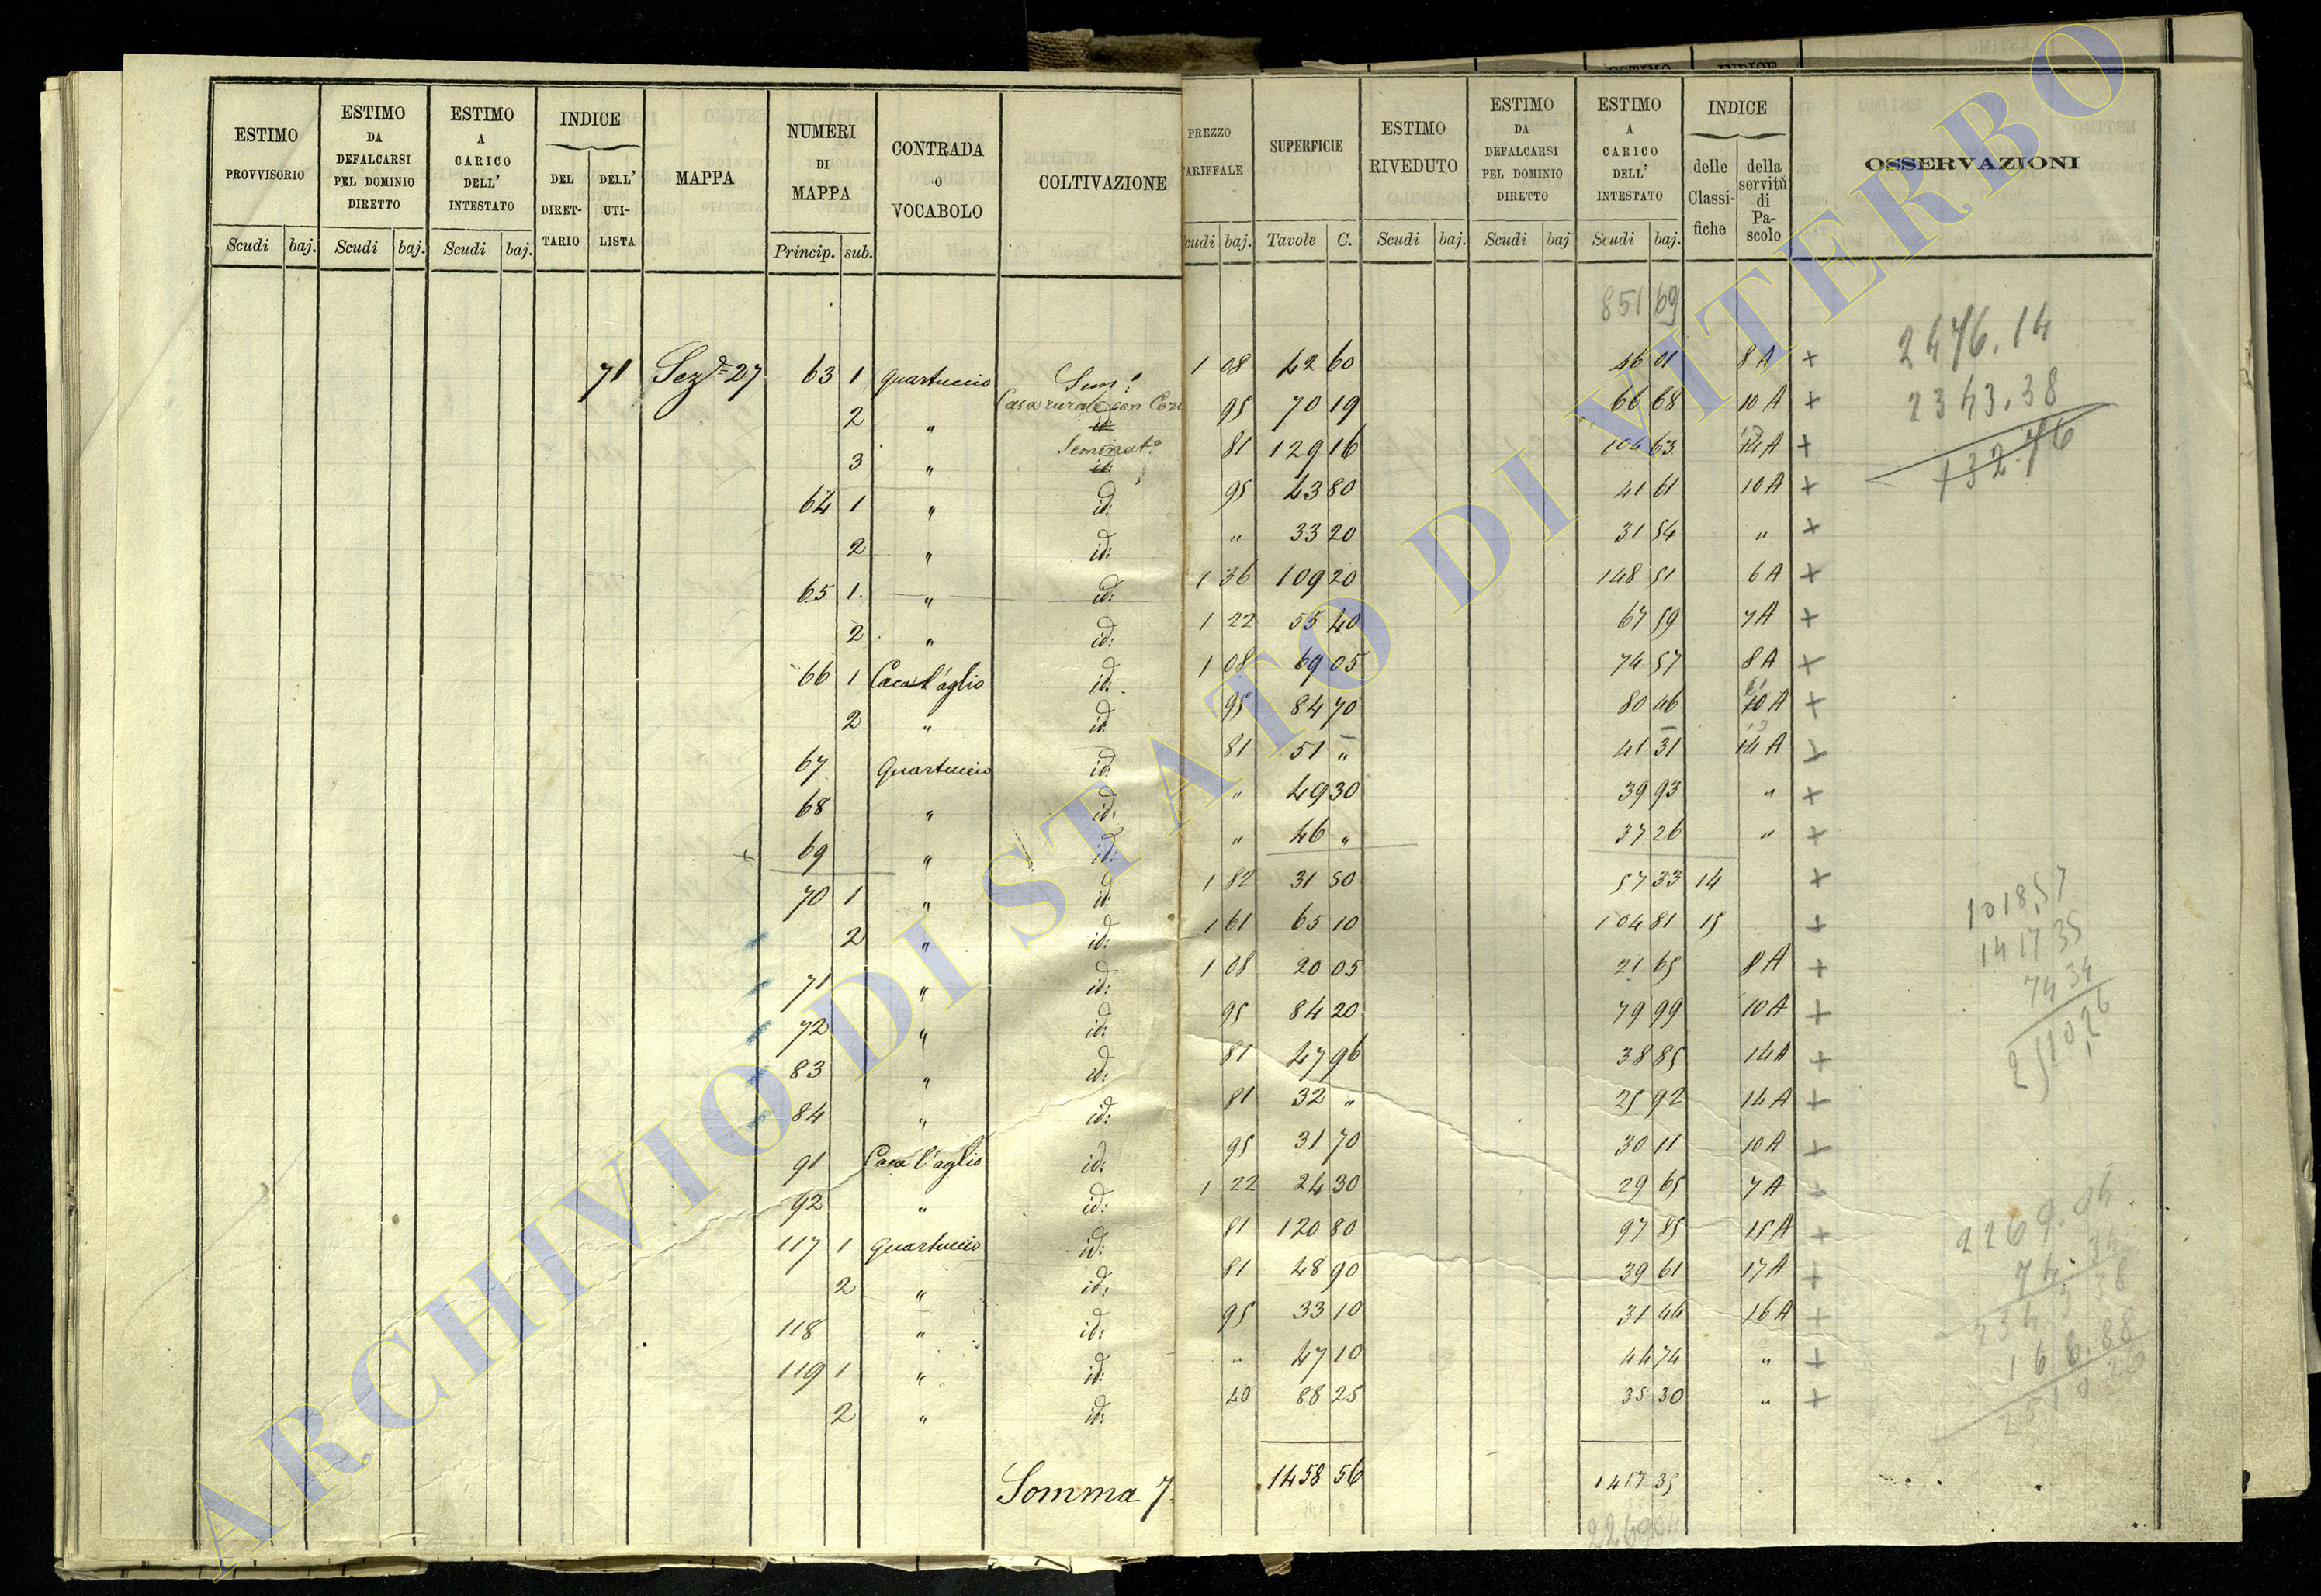 ESTIMO PROVVISORIO | ESTIMO DA DEFALCARSI PEL DOMINIO DIRETTO | ESTIMO A CARICO DELL' INTESTATO | INDICE DEL DIRETTARIO | DELL' UTILISTA | MAPPA | NUMERI DI MAPPA | CONTRADA O VOCABOLO | COLTIVAZIONE | PREZZO ARIFFALE | SUPERFICIE | ESTIMO RIVEDUTO | ESTIMO DA DEFALCARSI PEL DOMINIO DIRETTO | ESTIMO A CARICO DELL' INTESTATO | INDICE delle Classifiche | della servitù di Pascolo | OSSERVAZIONI
Scudi baj. Scudi baj. Scudi baj. Princip. sub. cudi baj. Tavole C. Scudi baj. Scudi baj Scudi baj.
851 69
71 Sez.e 27 63 1 Quartuccio Sem: 1 08 42 60 46 01 8 A +
2 " Casa rurale con id: 95 70 19 66 68 10 A +
3 " Seminat.o id: 81 129 16 104 63 14 A +
64 1 " id: 95 43 80 41 61 10 A +
2 " id: " 33 20 31 54 " +
65 1. " id: 1 36 109 20 148 51 6 A +
2 " id: 1 22 55 40 67 59 7 A +
66 1 Caca l'aglio id: 1 08 69 05 74 57 8 A +
2 " id: 95 84 70 80 46 10 A +
67 Quartuccio id: 81 51 " 41 31 14 A +
68 " id: " 49 30 39 93 " +
+ 69 " id: " 46 " 37 26 " +
70 1 " id: 1 82 31 50 57 33 14 +
2 " id: 1 61 65 10 104 81 15 +
71 " id: 1 08 20 05 21 65 8 A +
72 " id: 95 84 20 79 99 10 A +
83 " id: 81 47 96 38 85 14 A +
84 " id: 81 32 " 25 92 14 A +
91 Caca l'aglio id: 95 31 70 30 11 10 A +
92 " id: 1 22 24 30 29 65 7 A +
117 1 Quartuccio id: 81 120 80 97 85 15 A +
2 " id: 81 48 90 39 61 17 A +
118 " id: 95 33 10 31 44 16 A +
119 1 " id: " 47 10 44 74 " +
2 " id: 40 88 25 35 30 " +
Somma 7. 1458 56 1417 35
2269 04
2476.14
2343.38
132.76
1018,57
1417 35
74 34
2510,26
2269.04
74.34
2343 38
166.88
2510 26
ARCHIVIO DI STATO DI VITERBO